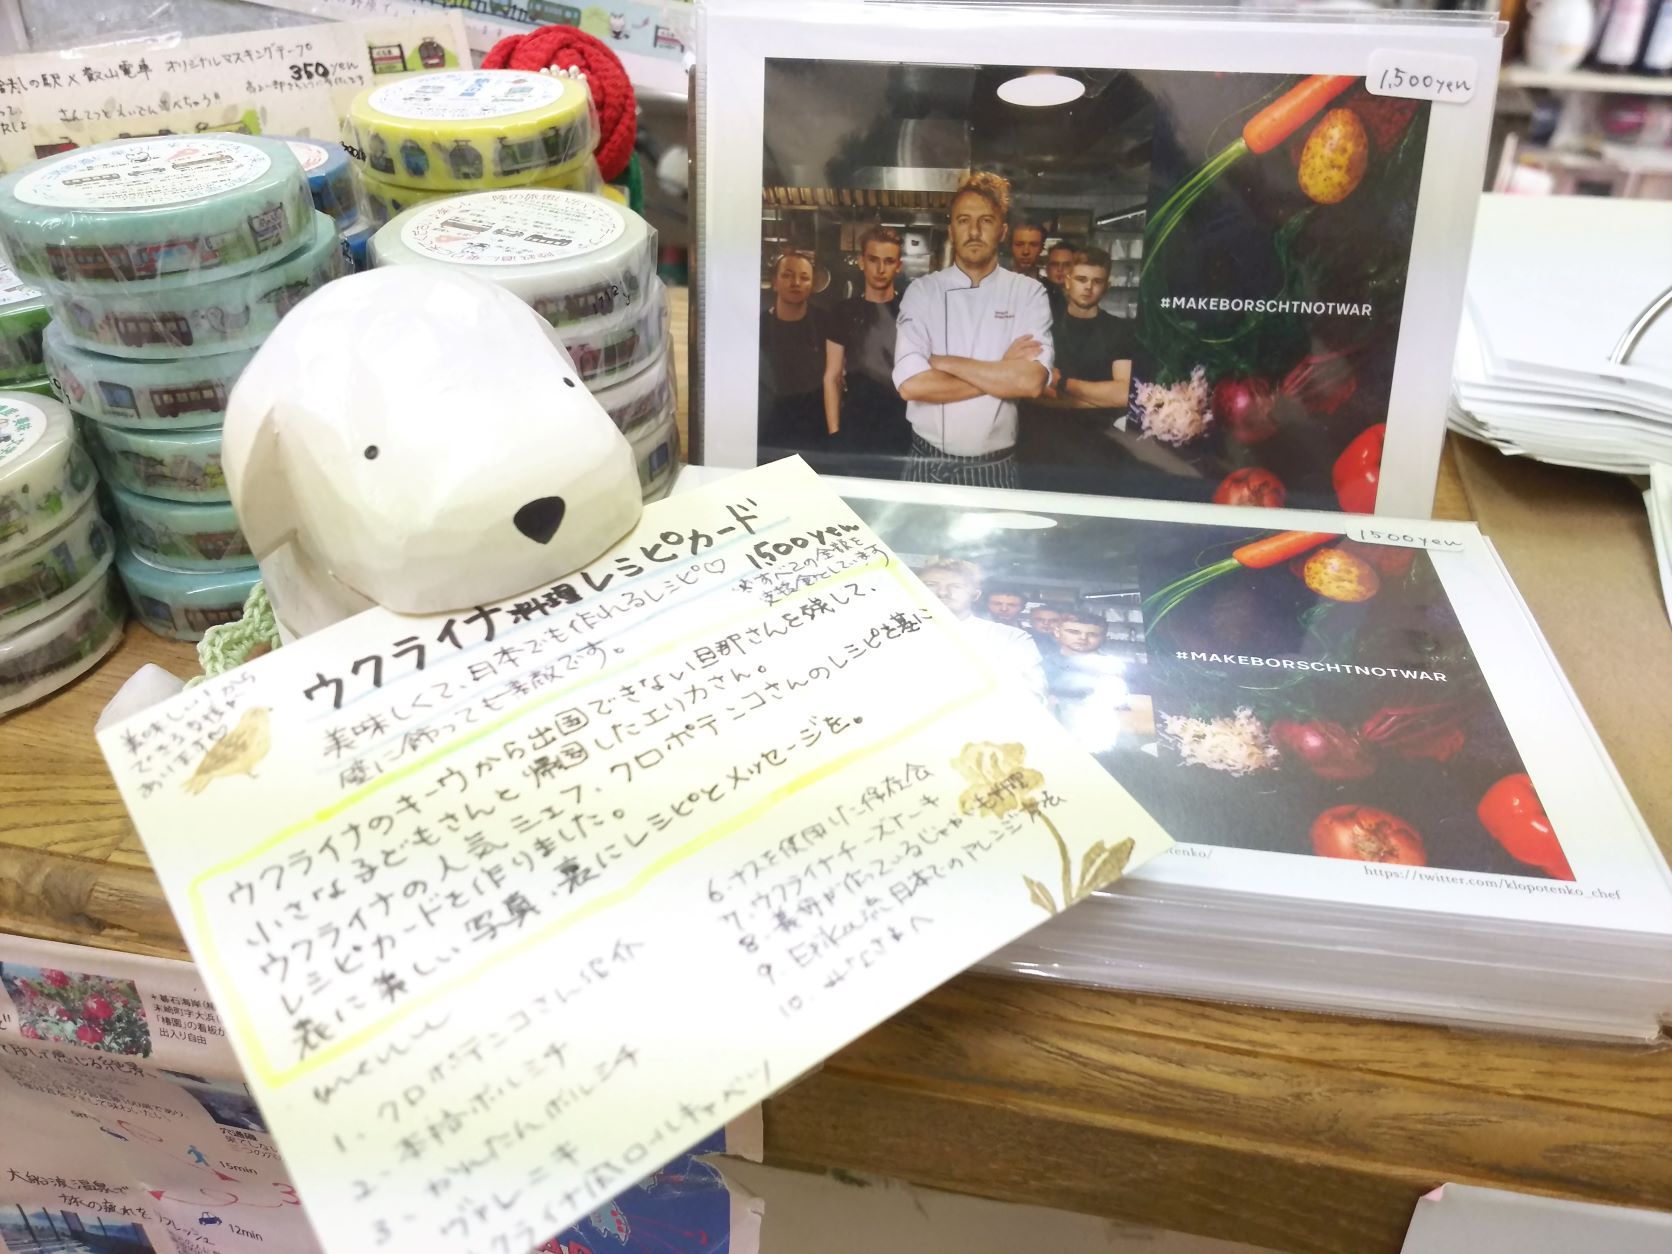 叡山電車 オリジナルマスキングテープ
350yen
1,500yen
#MAKEBORSCHTNOTWAR
1500yen
#MAKEBORSCHTNOTWAR
https://twitter.com/klopotenko_chef
ウクライナ料理レシピカード
1,500yen
美味しくて、日本でも作れるレシピ♡
※すべての金額を
支援金としています
壁に飾っても素敵です。
美味しいから
できる支援が
あります♡
ウクライナのキーウから出国できない旦那さんを残して、
小さな子どもさんと帰国したエリカさん。
ウクライナの人気シェフ、クロポテンコさんのレシピを基に
レシピカードを作りました。
表に美しい写真、裏にレシピとメッセージを。
menu
1. クロポテンコさん紹介
2. 本格ボルシチ
3. かんたんボルシチ
ヴァレニキ
ウクライナ風ロールキャベツ
6. ナスを使用した保存食
7. ウクライナチーズケーキ
8. 義母が作っているじゃがいも料理
9. Erika流 日本でのアレンジ方法
10. みなさまへ
*碁石海岸
末崎町字大浜
「椿園」の看板が
出入り自由
穴通磯
15min
大船渡温泉で
旅の疲れをリフレッシュ
12min